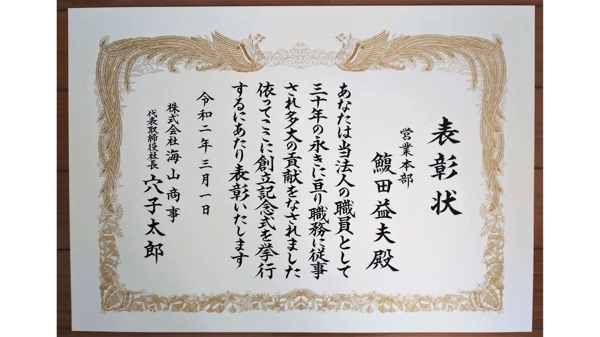 表彰状
営業本部
鰒田益夫殿
あなたは当法人の職員として
三十年の永きに亘り職務に従事
され多大の貢献をなされました
依ってここに創立記念式を挙行
するにあたり表彰いたします
令和二年三月一日
株式会社海山商事
代表取締役社長 穴子太郎